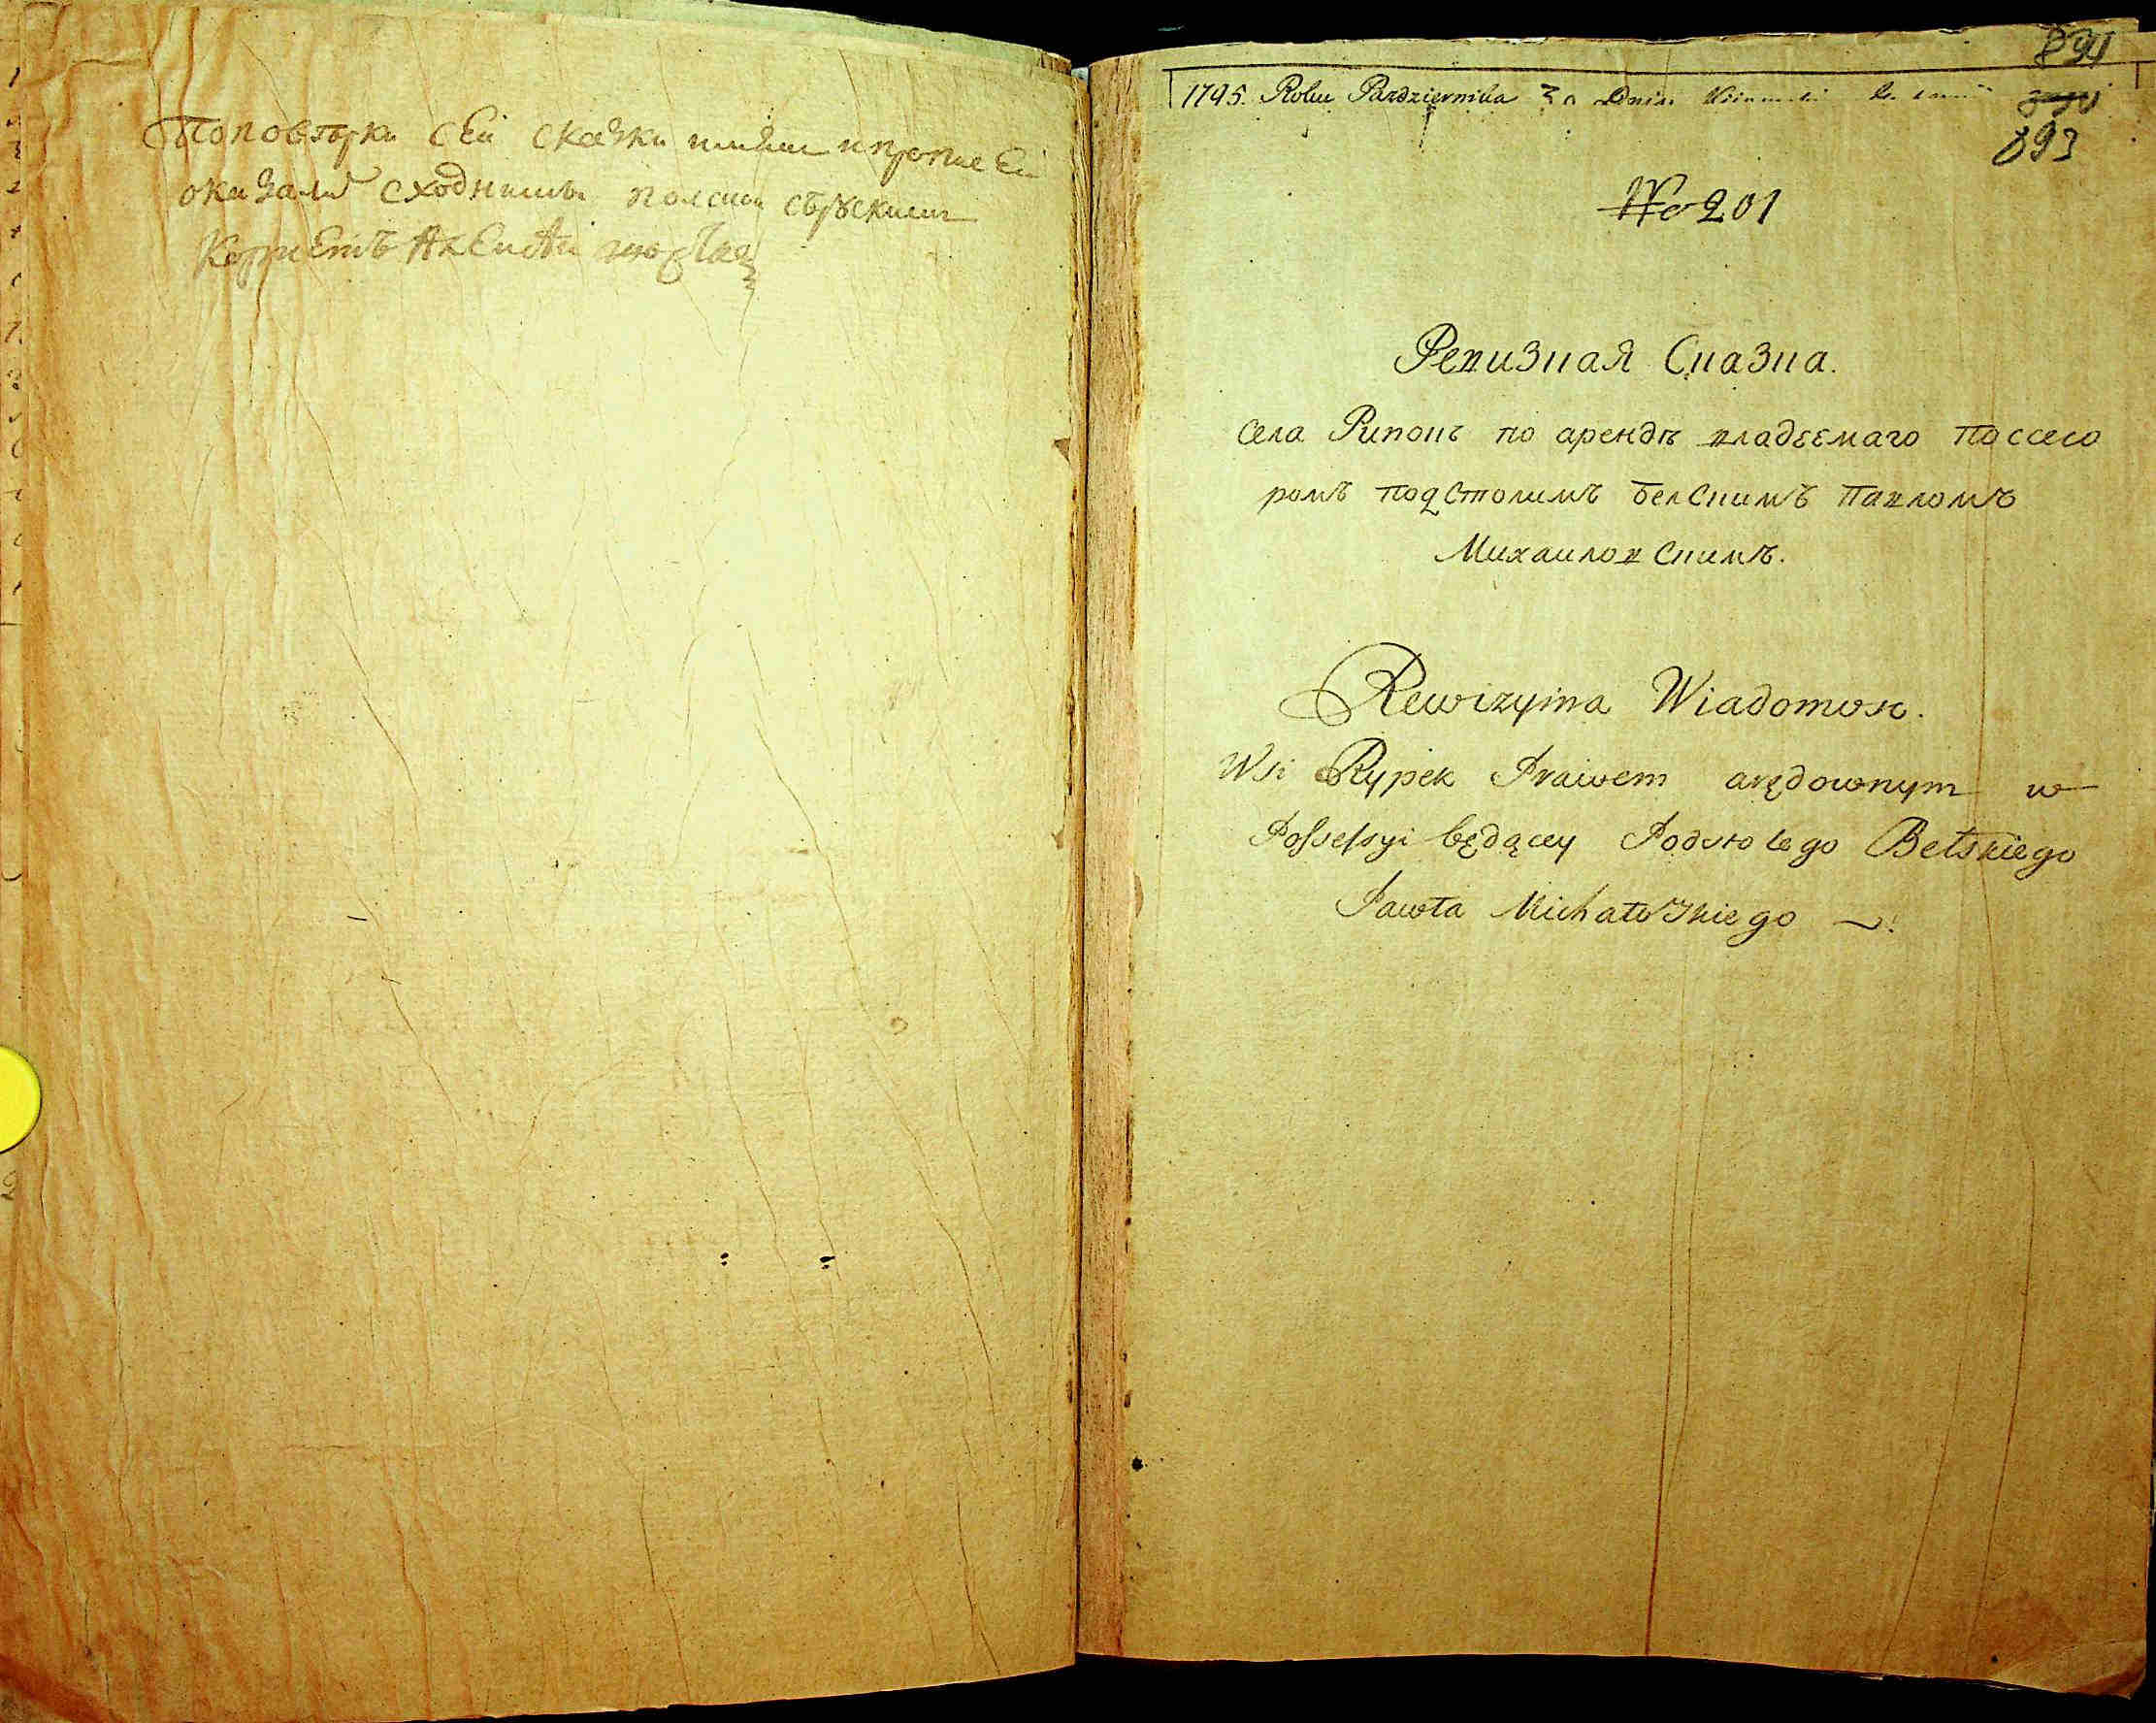 Поповѣрки сей скаски
оказалис сходными полской съ рускими
Корнетъ Аксентей
894
1795. Roku Pazdziernika 30 Dnia
893
No 201
Ревизная Сказка.
Села Рипокъ по арендѣ владеемаго поссесо
ромъ подстолимъ белскимъ павломъ
Михаиловскимъ.
Rewizyina Wiadomosc.
Wsi Rypek Prawem arędownym w
Possessyi będącey Podstolego Bełskiego
Pawła Michałowskiego